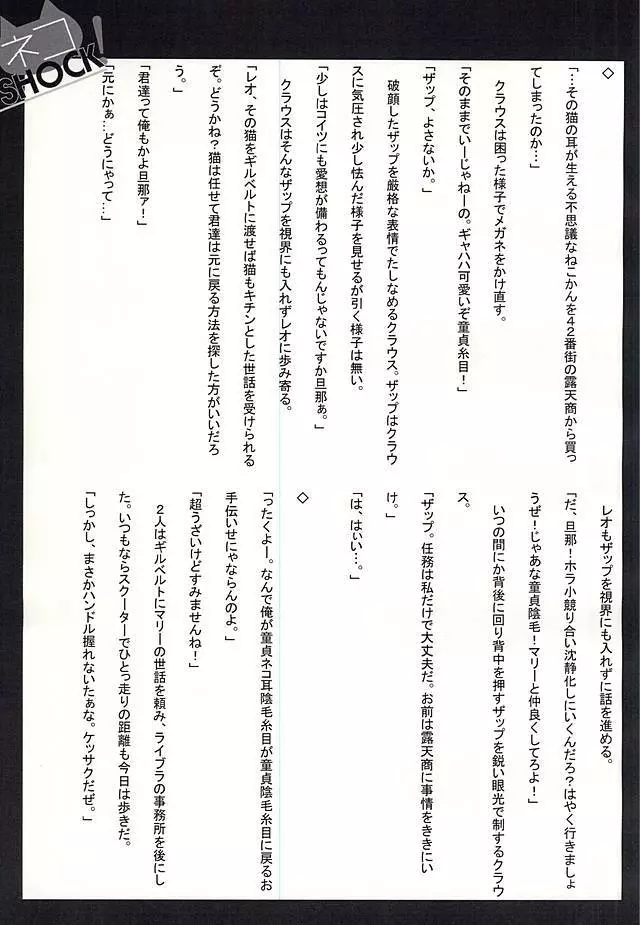 ネコ
SHOCK!
◇
「…その猫の耳が生える不思議なねこかんを42番街の露天商から買っ
てしまったのか…」
クラウスは困った様子でメガネをかけ直す。
「そのままでいーじゃねーの。ギャハハ可愛いぞ童貞糸目!」
「ザップ、よさないか。」
破顔したザップを厳格な表情でたしなめるクラウス。ザップはクラウ
スに気圧され少し怯んだ様子を見せるが引く様子は無い。
「少しはコイツにも愛想が備わるってもんじゃないですか旦那ぁ。」
クラウスはそんなザップを視界にも入れずレオに歩み寄る。
「レオ、その猫をギルベルトに渡せば猫もキチンとした世話を受けられる
ぞ。どうかね?猫は任せて君達は元に戻る方法を探した方がいいだろ
う。」
「君達って俺もかよ旦那ァ!」
「元にかぁ…どうにゃって…」
レオもザップを視界にも入れずに話を進める。
「だ、旦那!ホラ小競り合い沈静化しにいくんだろ?はやく行きましょ
うぜ!じゃあな童貞陰毛!マリーと仲良くしてろよ!」
いつの間にか背後に回り背中を押すザップを鋭い眼光で制するクラウ
ス。
「ザップ。任務は私だけで大丈夫だ。お前は露天商に事情をききにい
け。」
「は、はぃい…。」
◇
「ったくよー。なんで俺が童貞ネコ耳陰毛糸目が童貞陰毛糸目に戻るお
手伝いせにゃならんのよ。」
「超うざいけどすみませんね!」
2人はギルベルトにマリーの世話を頼み、ライブラの事務所を後にし
た。いつもならスクーターでひとっ走りの距離も今日は歩きだ。
「しっかし、まさかハンドル握れないたぁな。ケッサクだぜ。」